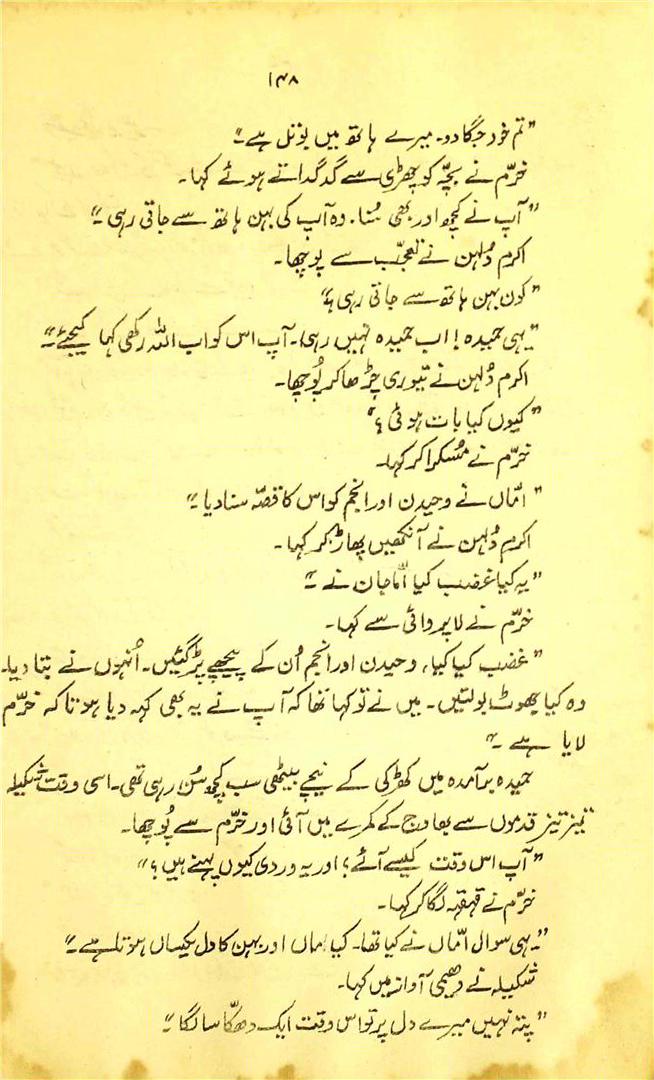 ۱۴۸
”تم خود جگا دو۔ میرے ہاتھ میں بوتل ہے۔“
خرّم نے بچّہ کو چھڑی سے گدگداتے ہوئے کہا۔
”آپ نے کچھ اور بھی سُنا۔ وہ آپ کی بہن ہاتھ سے جاتی رہی۔“
اکرم دُلہن نے تعجّب سے پوچھا۔
”کون بہن ہاتھ سے جاتی رہی؟“
”یہی حمیدہ! اب حمیدہ نہیں رہی۔ آپ اس کو اب اللہ رکھی کہا کیجئے۔“
اکرم دُلہن نے تیوری چڑھا کر پُوچھا۔
”کیوں کیا بات ہوئی؟“
خرّم نے مُسکرا کر کہا۔
”امّاں نے وحیدن اور انجم کو اس کا قصّہ سنا دیا۔“
اکرم دُلہن نے آنکھیں پھاڑ کر کہا۔
”یہ کیا غضب کیا امّاجان نے۔“
خرّم نے لاپروائی سے کہا۔
”غضب کیا کیا، وحیدن اور انجم اُن کے پیچھے پڑ گئیں۔ اُنہوں نے بتا دیا۔
وہ کیا جھوٹ بولتیں۔ میں نے تو کہا تھا کہ آپ نے یہ بھی کہہ دیا ہوتا کہ خرّم
لایا ہے۔“
حمیدہ برآمدہ میں کھڑکی کے نیچے بیٹھی سب کچھ سُن رہی تھی۔ اسی وقت شکیلہ
تیز تیز قدموں سے بھاوج کے کمرے میں آئی اور خرّم سے پُوچھا۔
”آپ اس وقت کیسے آئے؟ اور یہ وردی کیوں پہنے ہیں؟“
خرّم نے قہقہہ لگا کر کہا۔
”یہی سوال امّاں نے کیا تھا۔ کیا اماں اور بہن کا دل یکساں ہوتا ہے۔“
شکیلہ نے دھیمی آواز میں کہا۔
”پتہ نہیں میرے دل پر تو اس وقت ایک دھکّا سا لگا۔“